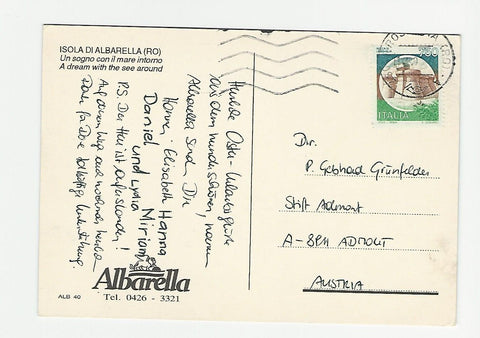 ISOLA DI ALBARELLA (RO)
Un sogno con il mare intorno
A dream with the see around
Herzliche Oster-Urlaubsgrüße
aus dem wunderschönen, warmen
Albarella senden Dir
Hanna
Elisabeth
Daniel und Lydia
Miriam
P.S. Der Herr ist auferstanden!
Auf diesem Weg auch nochmals herzl.
Dank für Deine tatkräftige Unterstützung
Albarella
Tel. 0426 - 3321
ALB 40
ITALIA
Dir.
P. Gebhard Grünfelder
Stift Admont
A-8911 ADMONT
AUSTRIA